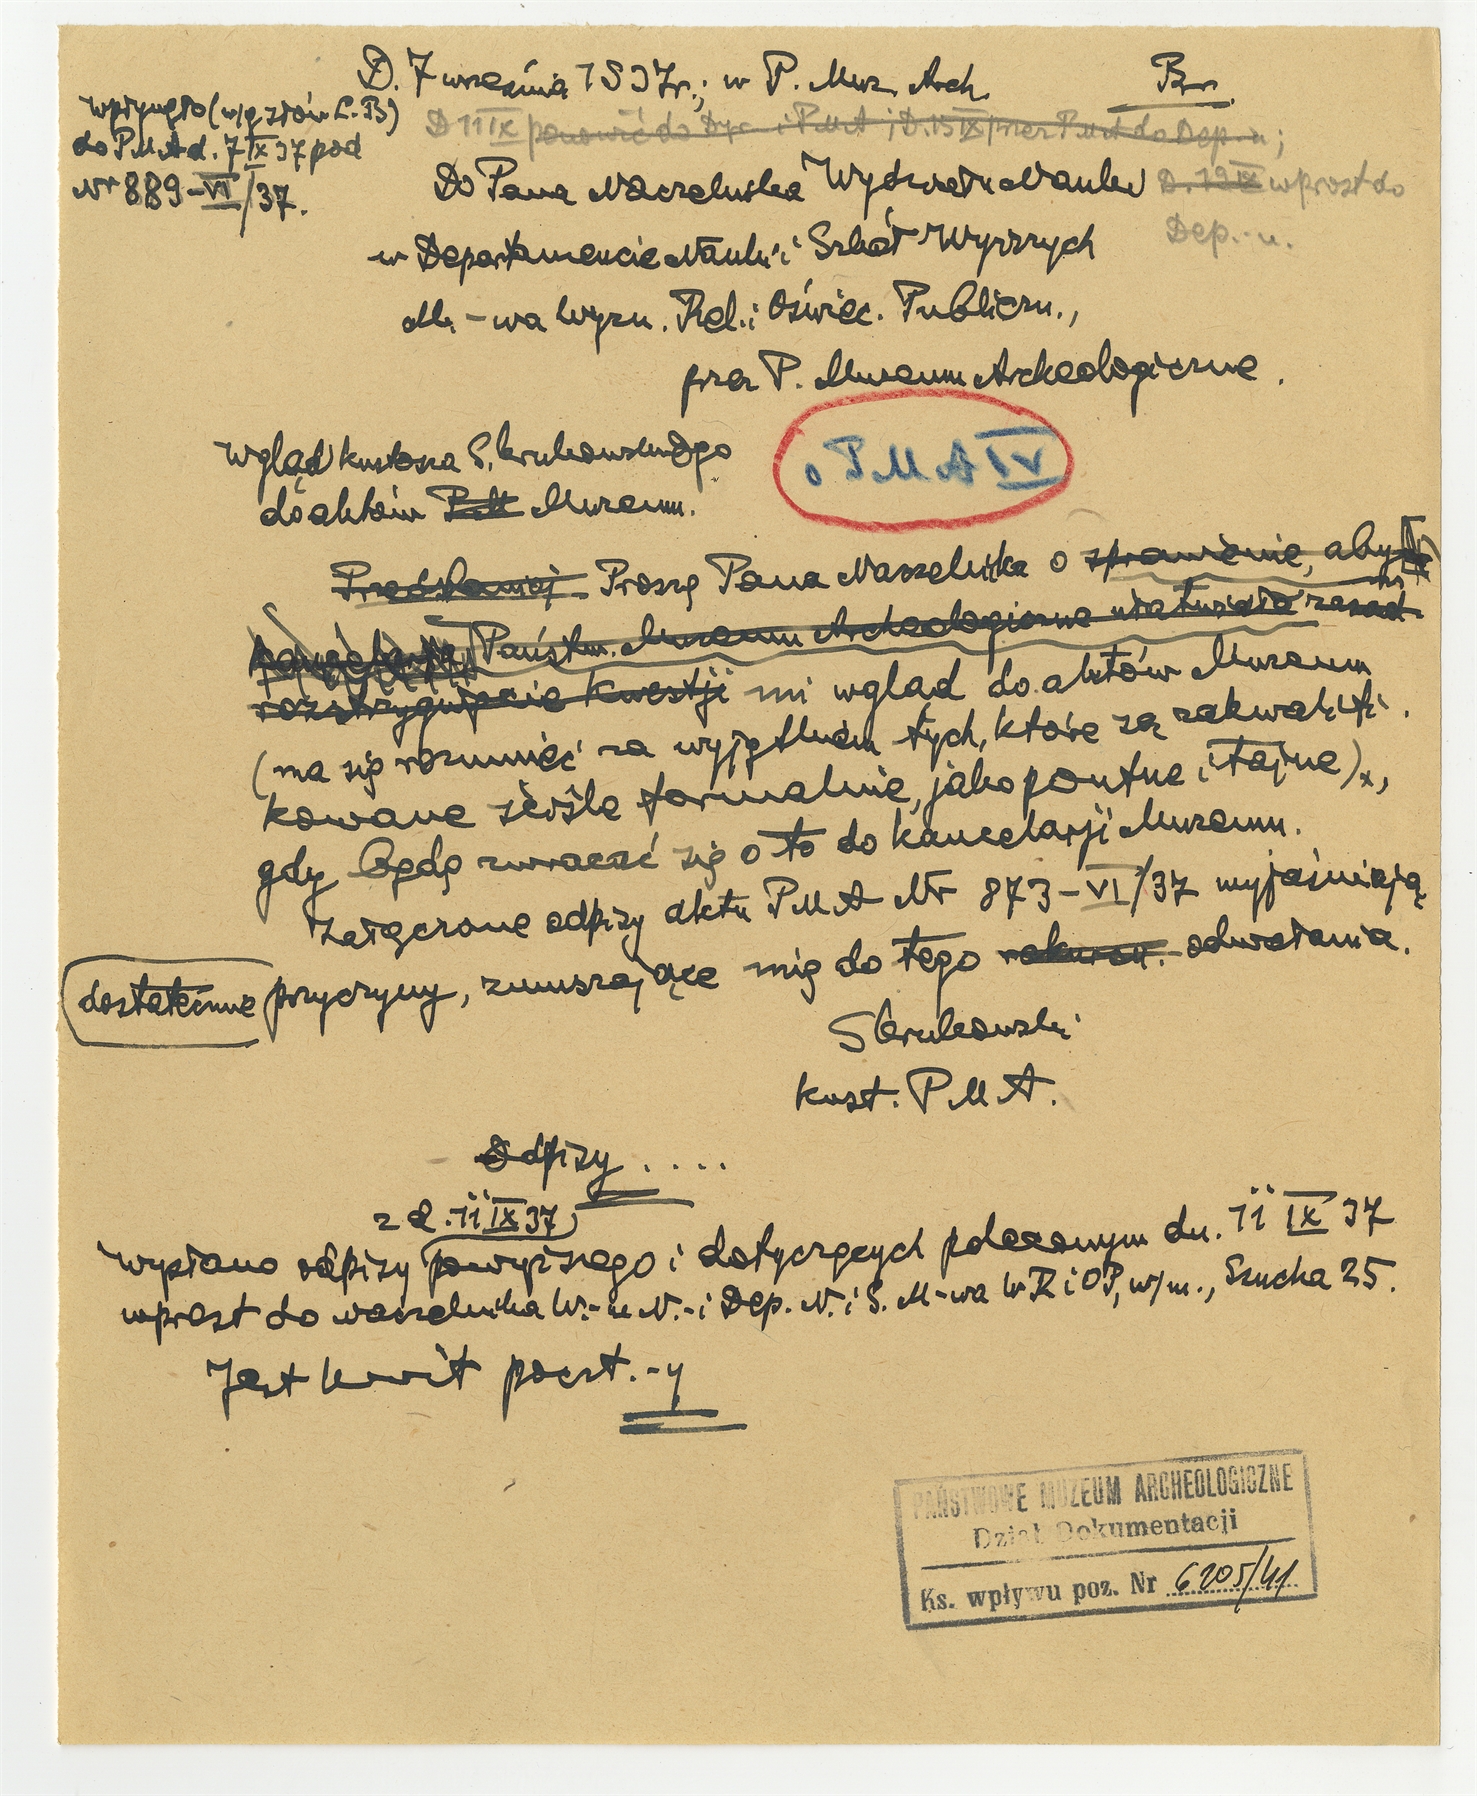 D. 7 września 1937 r.; w P. Muz. Arch. Br.
Wpłynęło (wg słów L. B)
do PMA d. 7 IX 37 pod
Nr 889-VI/37.
D 11 IX ponowić do Dyr i PMA i D. 15 IX przez PMA do Dep. n;
D. 19 IX wprost do
Dep. n.
Do Pana Naczelnika Wydziału Nauki
w Departamencie Nauki i Szkół Wyższych
M-wa Wyzn. Rel. i Oświec. Publiczn.,
przez P. Muzeum Archeologiczne.
Wgląd kustosza S. Krukowskiego
do aktów PM Muzeum.
o PMA IV
Proszę Pana Naczelnika o sprawienie, aby
Państw. Muzeum Archeologiczne ułatwiało zasad
rozstrzygnięcie kwestji mi wgląd do aktów Muzeum
(ma się rozumieć za wyjątkiem tych, które są zakwalifi.
kowane ściśle formalnie, jako poufne i tajne)x,
gdy będę zwracać się o to do kancelarji Muzeum.
Załączone odpisy aktu PMA Nr 873-VI/37 wyjaśniają
dostatecznie przyczyny, zmuszające mię do tego odwołania.
S Krukowski
kust. PMA.
Odpisy ....
z d. 11 IX 37
Wysłano odpisy powyższego i dotyczących poleconym dn. 11 IX 37
wprost do naczelnika W.-u N.-i Dep. N. i S. M-wa WR i OP, w/m., Szucha 25.
Jest kwit poczt.-y
PAŃSTWOWE MUZEUM ARCHEOLOGICZNE
Dział Dokumentacji
Ks. wpływu poz. Nr 6205/41